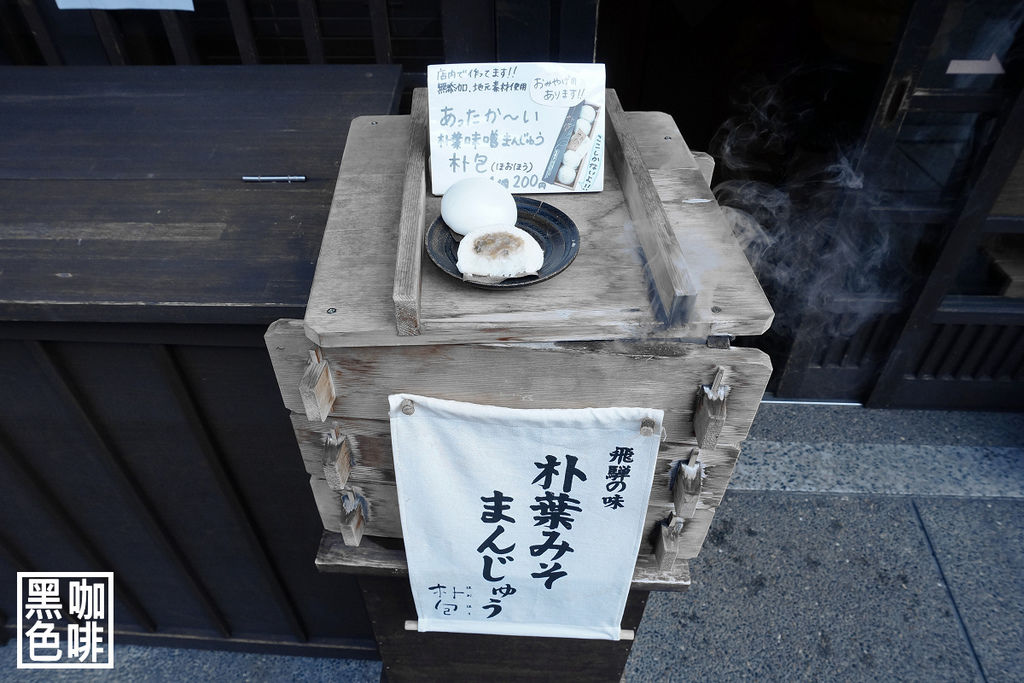 店内で作ってます!!
無添加、地元素材使用
おみやげ用
あります!!
あったか〜い
朴葉味噌まんじゅう
朴包(ほおほう)
200円
ここしかないよ!!
飛騨の味
朴葉みそ
まんじゅう
朴包
黑色
咖啡